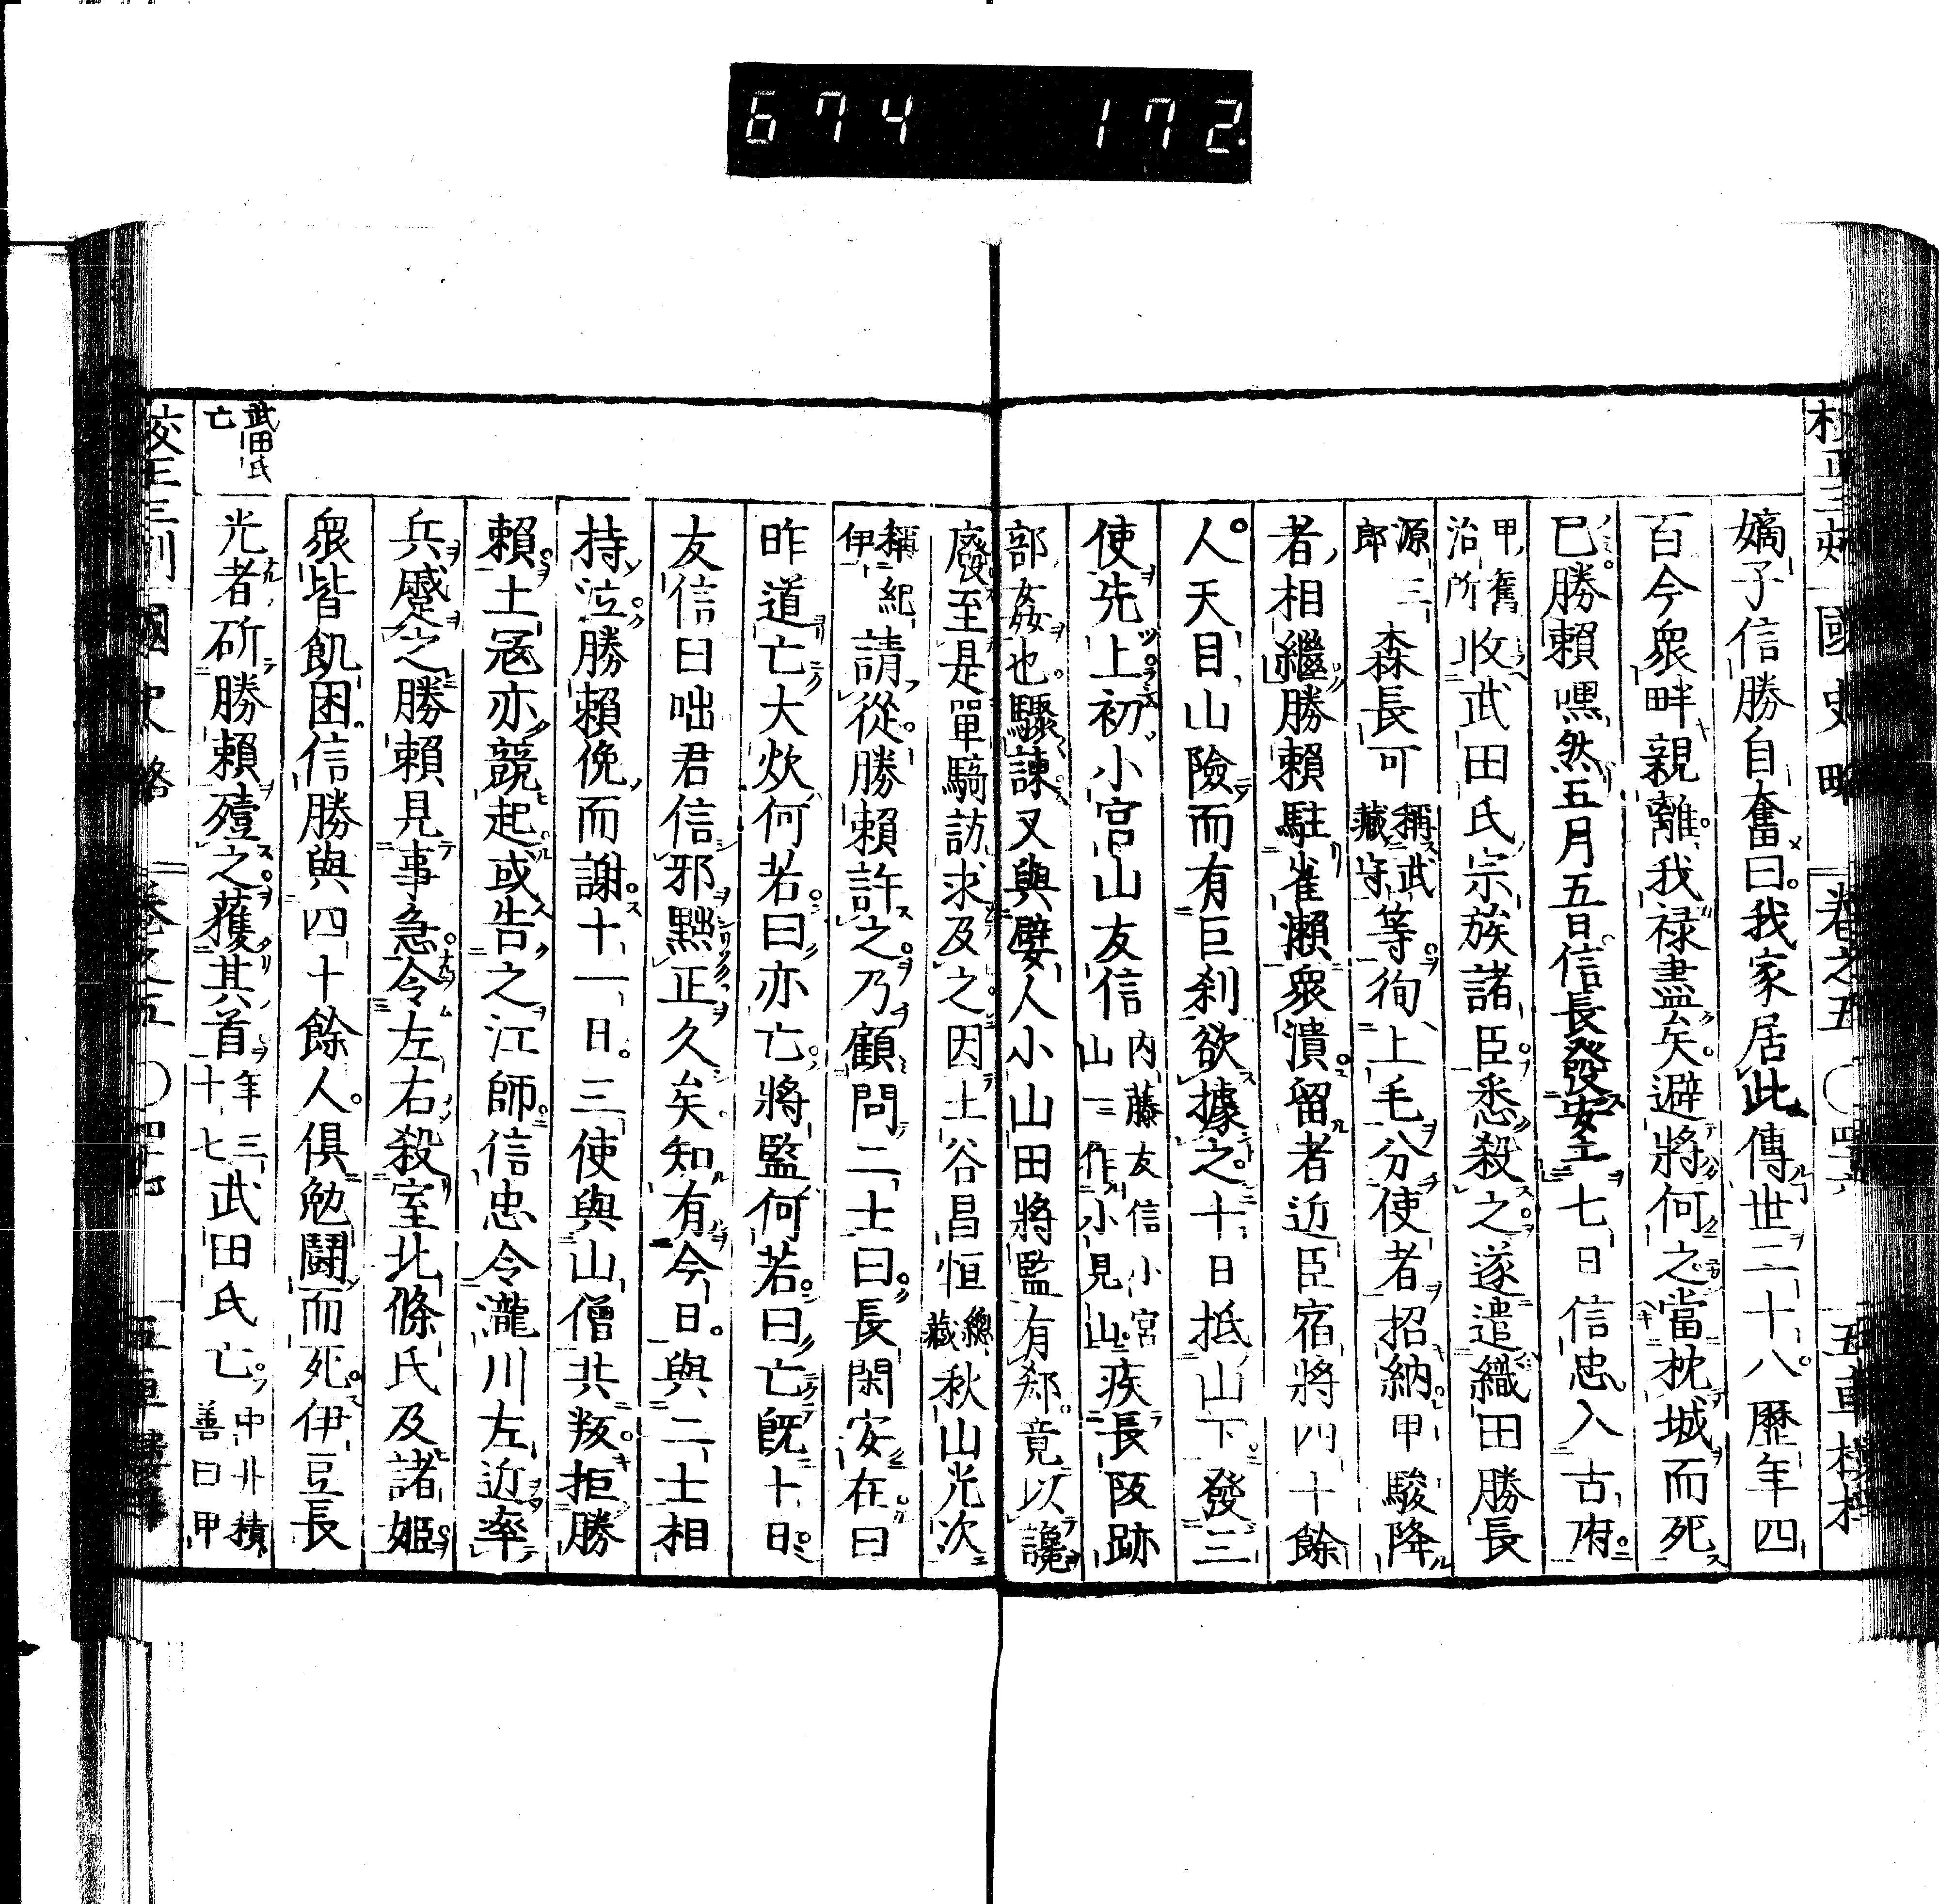 674 172
國史略 卷之五 〇四十六 五車樓梓
嫡子信勝自奮曰。我家居此傳世二十八。歷年四
百今衆畔親離。我祿盡矣。避將何之。當枕城而死
已。勝賴嘿然。五月五日信長發安土七日信忠入古府
甲舊治所收武田氏宗族諸臣。悉殺之。遂遣織田勝長
源三郎森長可稱武藏守等。徇上毛分使者招納。甲駿降
者相繼勝賴駐雀瀨衆潰。留者近臣宿將四十餘
人。天目山險而有巨刹欲據之。十日抵山下。發三
使先上初小宮山友信內藤友信小宮山一作小見山疾長阪跡
部姦也。驟諫又與嬖人小山田將監有郄。竟以讒
廢至是單騎訪求及之。因土谷昌恒總藏秋山光次
稱紀伊請從。勝賴許之。乃顧問二士曰。長閑安在曰
昨道亡。大炊何若。曰亦亡。將監何若。曰亡旣十日。
友信曰咄君信邪黜正久矣。知有今日。與二士相
持泣。勝賴俛而謝。十一日。三使與山僧共叛。拒勝
賴。土冦亦競起。或告之江師。信忠令瀧川左近率
兵蹙之。勝賴見事急。令左右殺室北條氏及諸姬。
衆皆飢困。信勝與四十餘人。俱勉鬪而死。伊豆長
光者斫勝賴殪之。獲其首。年三十七武田氏亡。中井積善曰甲
武田氏亡